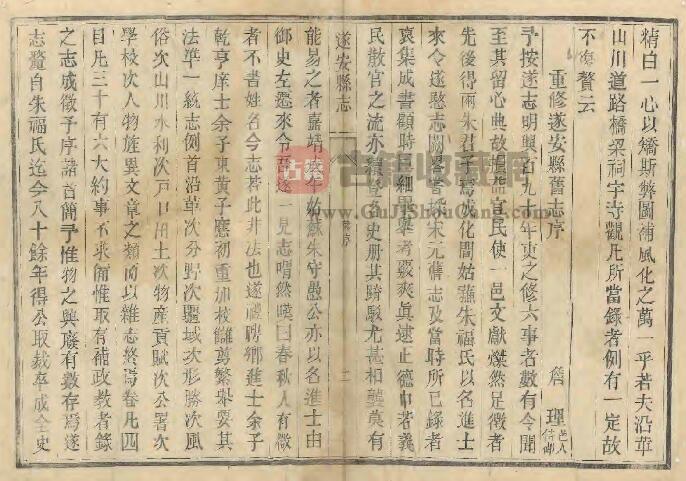 精白一心以矯斯弊圖補風化之萬一乎若夫沿革
山川道路橋梁祠宇寺觀凡所當錄者例有一定故
不復贅云
重修遂安縣舊志序
詹理
邑人
侍御
予按遂志明興百九十年吏之修六事者數有令聞
至其留心典故
官民使一邑文獻燦然足徵者
先後得兩朱君子焉成化間始
朱福氏以名進士
來令遂慜志闕畧
採宋元舊志及當時所已錄者
裒集成書顧時
細思舉考覈爽眞逮正德中若義
民散官之流亦
得名史册其踦駁尤甚相襲莫有
遂安縣志
舊序
二
能易之者嘉靖
始蘇朱守愚公亦以名進士由
御史左遷來令吾遂一見志喟然嘆曰春秋人有微
者不書姓名今志若此非法也遂禮聘鄉進士余子
乾亨庠士余子東黃子應初重加校讎芟繁舉要其
法準一統志例首沿革次分野次疆域次形勝次風
俗次山川水利次戶口田土次物產貢賦次公署次
學校次人物旌異文章之類而以雜志終焉卷凡四
目凡三十有六大約事不求備惟取有補政教者錄
之志成徵予序諸首簡予惟物之興廢有數存焉遂
志蓋自朱福氏迄今八十餘年得公取裁存成全史
古籍收藏网
www.GuJiShouCang.com